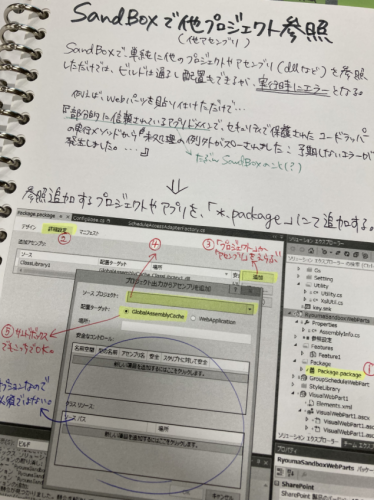 SandBoxで他プロジェクト参照
(他アセンブリ)
SandBoxで、単純に他のプロジェクトやアセンブリ(dllなど)を参照
しただけでは、ビルドは通るし配置もできるが、実行時にエラーとなる。
例えば、Webパーツを貼り付けただけで…
『部分的に信頼されているアプリドメインで、セキュリティで保護されたコードラッパー
の実行メソッドから『未処理の例外がスローされました:予期しないエラーが
発生しました。…』
たぶんSandBoxのこと(?)
参照追加するプロジェクトやアプリを、「*.package」にて追加する。
Package.package
デザイン
詳細設定
マニフェスト
②
④
③「プロジェクト」か
追加アセンブリ
ソース
配置ターゲット
場所
追加
ClassLibrary1
プロジェクト出力からアセンブリを追加
ソース プロジェクト:
配置ターゲット:
GlobalAssemblyCache
WebApplication
場所:
⑤サンドボックス
でもこっちでOK。
安全なコントロール:
名前空間
型の名前
アセンブリ名
安全
スクリプトに対して安全
新しい項目を追加するにはここをクリックします。
クラス リソース:
ソース パス
場所
新しい項目を追加するにはここをクリックします。
ソリューション エクスプローラー
Co
Setting
Utility
Const.cs
XsUtil.cs
key.snk
RyoumaSandboxWebParts
Properties
AssemblyInfo.cs
参照設定
Features
Feature1
Package
Package.package
①
GroupScheduleWebPart
StyleLibrary
VisualWebPart1
Elements.xml
VisualWebPart1.ascx
プロパティ
SharePoint